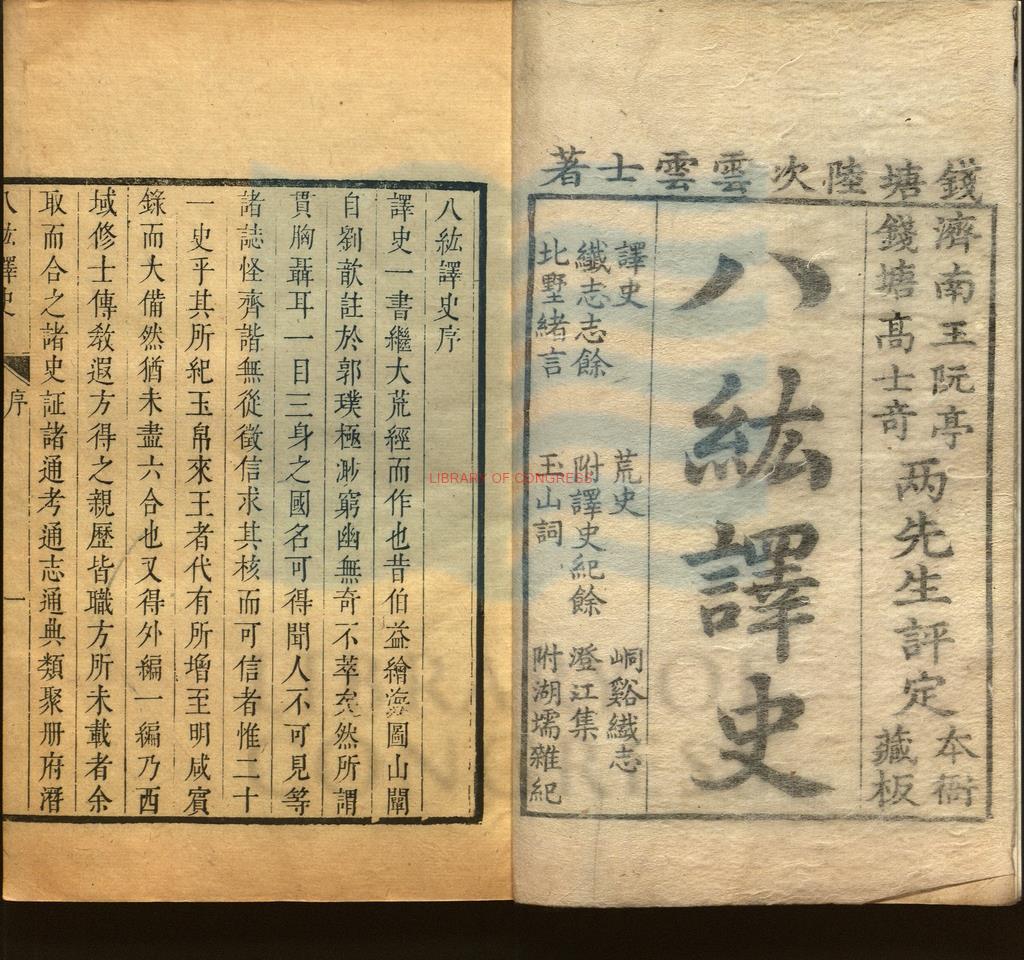 錢塘陸次雲雲士著
濟南王阮亭
錢塘高士奇
两先生評定
本衙
藏板
八紘譯史
譯史　荒史　峒谿纎志
纎志志餘　附譯史紀餘　澄江集
北墅緒言　玉山詞　附湖壖雜紀
八紘譯史序
譯史一書繼大荒經而作也昔伯益繪海圖山闡
自劉歆註於郭璞極渺窮幽無奇不萃矣然所謂
貫胸聶耳一目三身之國名可得聞人不可見等
諸誌怪齊諧無從徵信求其核而可信者惟二十
一史乎其所紀玉帛來王者代有所增至明咸賓
錄而大備然猶未盡六合也又得外編一編乃西
域修士傳敎遐方得之親歷皆職方所未載者余
取而合之諸史証諸通考通志通典類聚册府潛
八紘譯史　序　一
LIBRARY OF CONGRESS